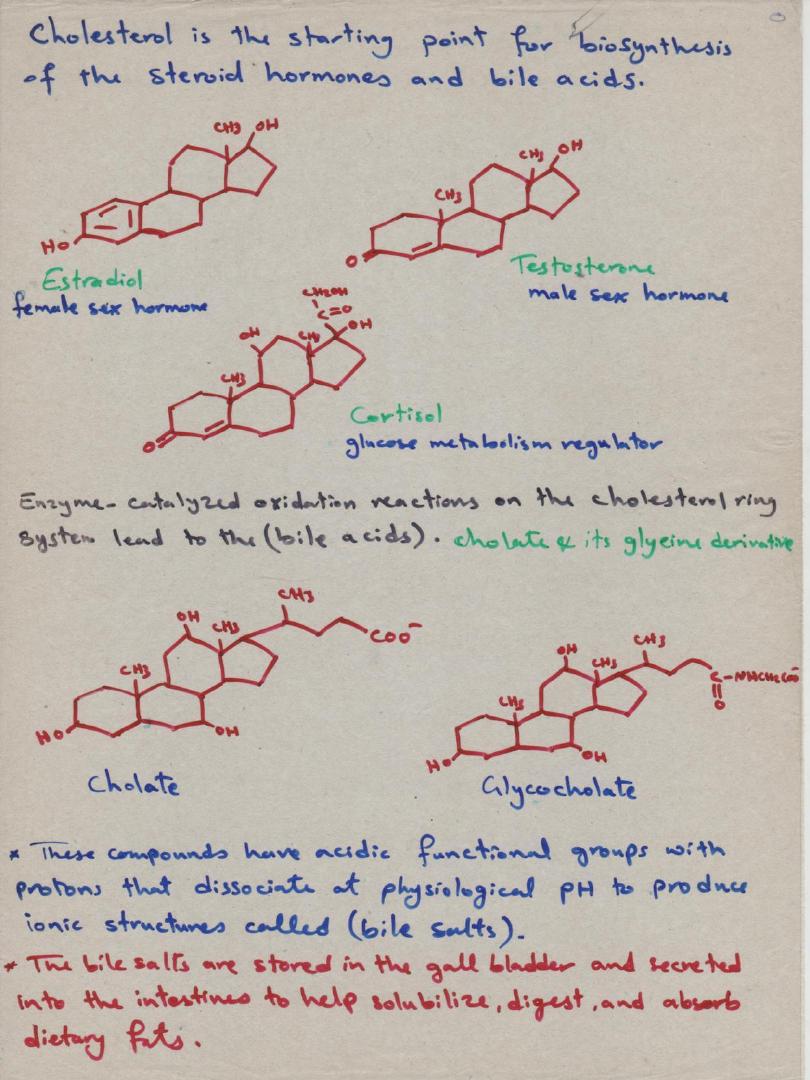 Cholesterol is the starting point for biosynthesis
of the steroid hormones and bile acids.
CH3 OH
HO
Estradiol
female sex hormone
CH3 OH
CH3
O
Testosterone
male sex hormone
CH2OH
C=O
OH
OH
CH3
CH3
O
Cortisol
glucose metabolism regulator
Enzyme-catalyzed oxidation reactions on the cholesterol ring
system lead to the (bile acids). cholate & its glycine derivative
CH3
OH
CH3
COO⁻
CH3
HO
OH
Cholate
CH3
OH
CH3
C-NHCH2COO⁻
O
CH3
HO
OH
Glycocholate
* These compounds have acidic functional groups with
protons that dissociate at physiological pH to produce
ionic structures called (bile salts).
* The bile salts are stored in the gall bladder and secreted
into the intestines to help solubilize, digest, and absorb
dietary fats.